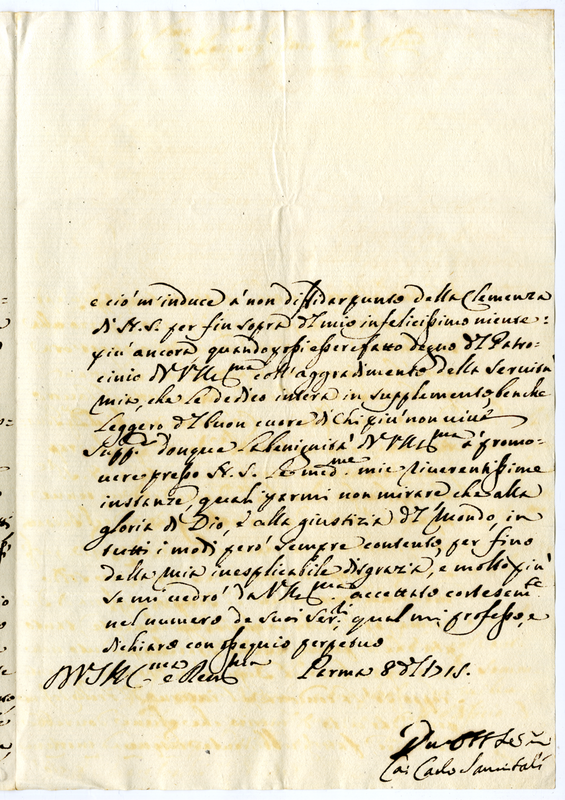 e ciò m'induce à non diffidar punto della Clemenza
di N. S. per fin sopra del mio infelicissimo niente:
più ancora quando possi esser fatto degno del Patro-
cinio di V. Ill.ma coll'aggradimento della servitù
mia, che le dedico intera in supplemento, benche
leggero del buon cuore di chi più non vive
Supp.o donque la benignità di V. Ill.ma à promo-
vere presso N. S. le med.me mie riverentissime
instanze, quali parmi non mirare che alla
gloria di Dio, è alla giustizia del Mondo, in
tutti i modi però sempre contento, per fino
della mia inesplicabile disgrazia, e molto più
se mi vedrò da V. Ill.ma accettato cortesem.te
nel numero de suoi Ser.ri qual mi professo, e
dichiaro con ossequio perpetuo
Parma 8 1715.
Carlo Sanvitali